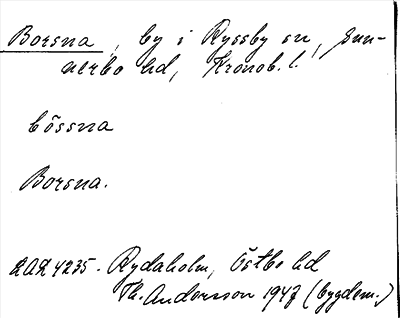 Borsna, by i Ryssby sn, Sun-
nerbo hd, Kronob. l.
bôssna
Borsna.
RAÄ 4235. Rydaholm, Östbo hd
Th. Andersson 1947 (bygdem.)